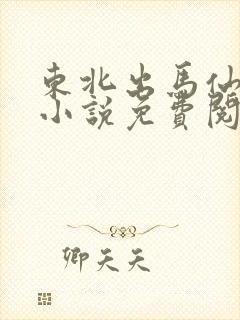 東北出馬仙
小說免費閱
卿天天